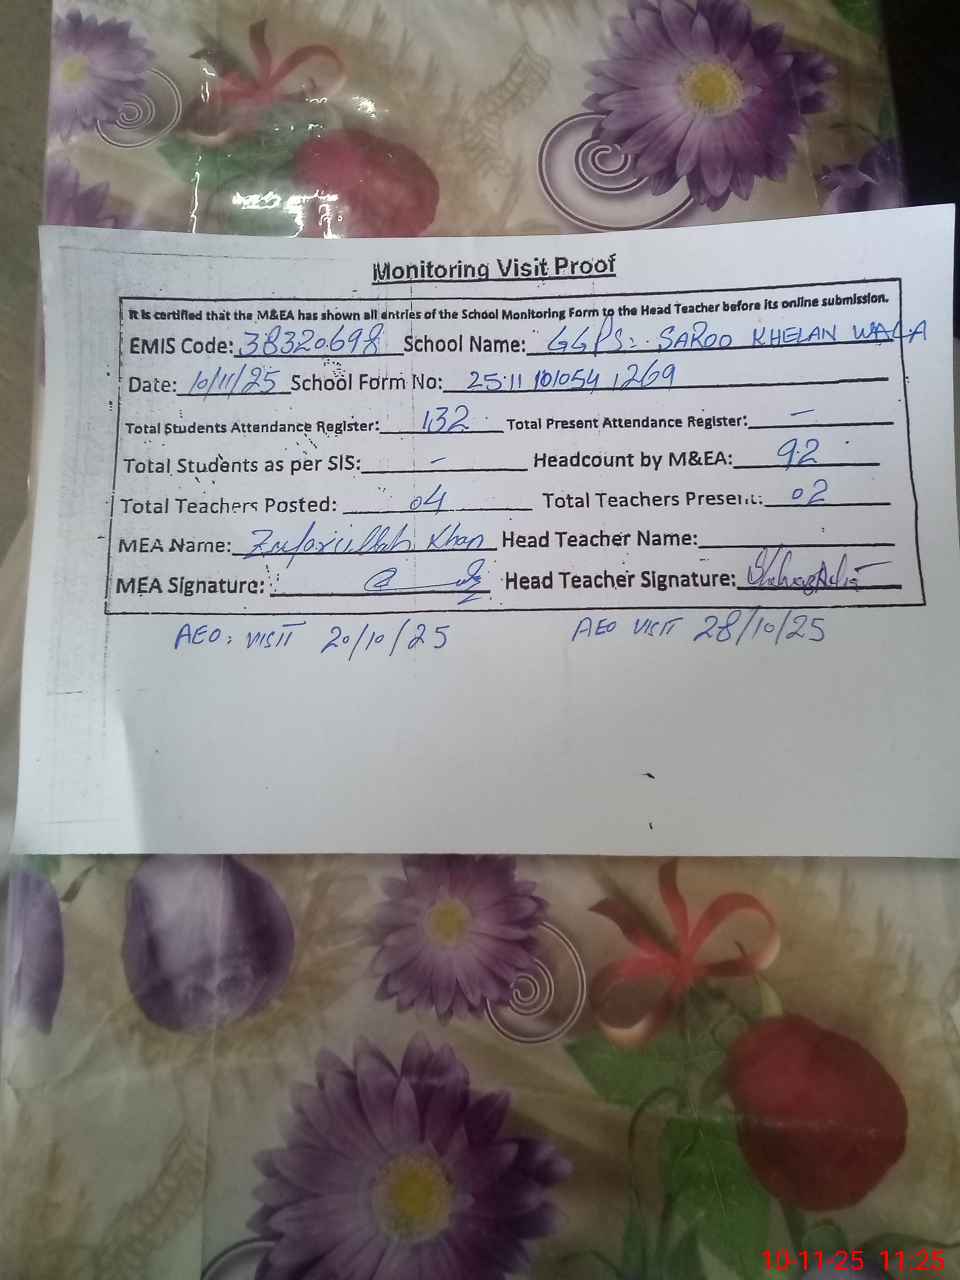 Monitoring Visit Proof
It is certified that the M&EA has shown all entries of the School Monitoring Form to the Head Teacher before its online submission.
EMIS Code: 38320698 School Name: GGPS: SAROO KHELAN WALA
Date: 10/11/25 School Form No: 2511 101054 1269
Total Students Attendance Register: 132 Total Present Attendance Register: -
Total Students as per SIS: - Headcount by M&EA: 92
Total Teachers Posted: 04 Total Teachers Present: 02
MEA Name: Zafarullah Khan Head Teacher Name:
MEA Signature: Head Teacher Signature:
AEO: VISIT 20/10/25 AEO VISIT 28/10/25
10-11-25 11:25